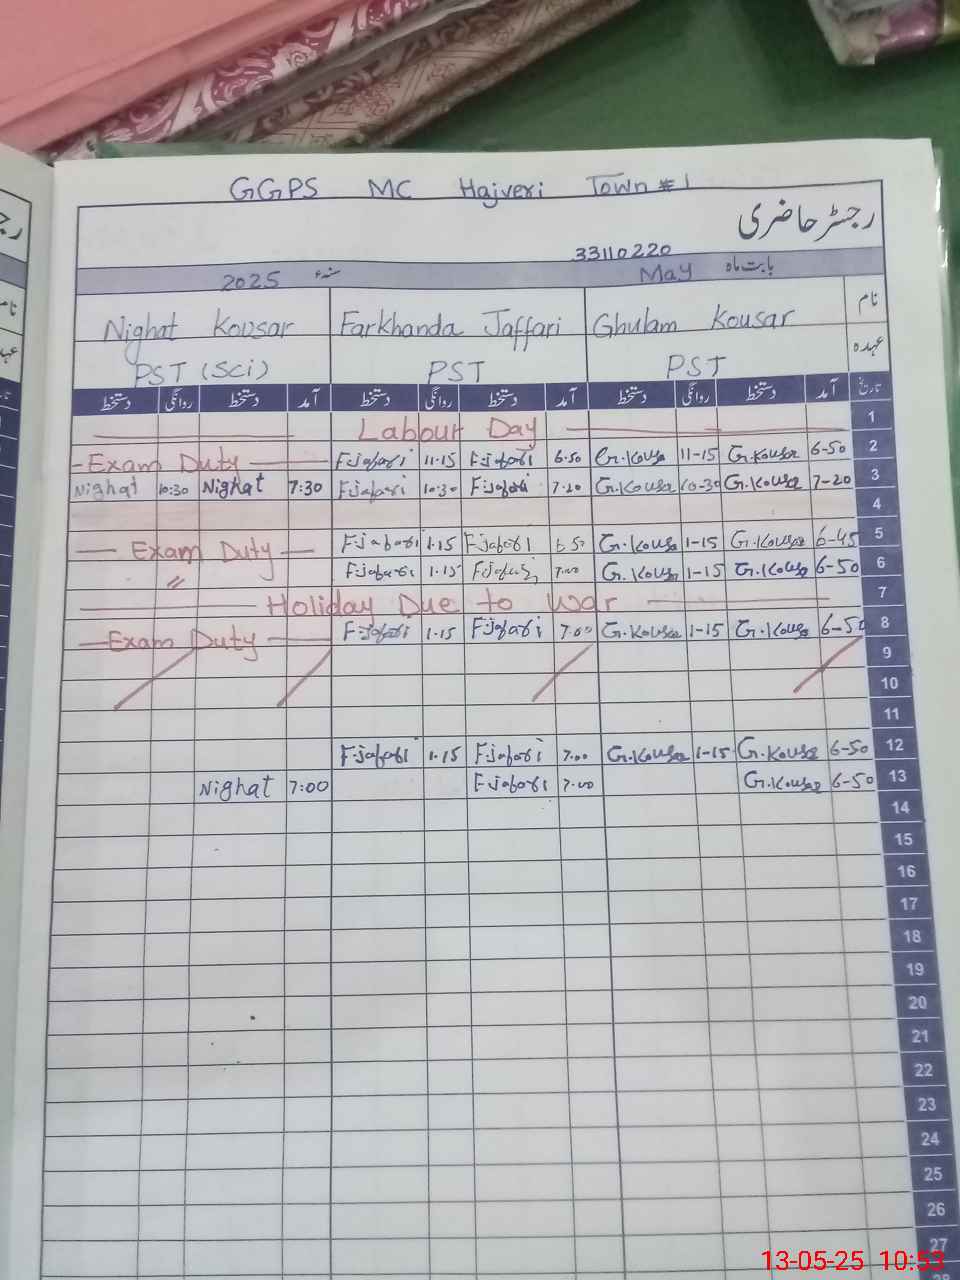 GGPS MC Hajveri Town # 1
رجسٹر حاضری
33110220
بابت ماہ May سنہء 2025
نام Ghulam Kousar Farkhanda Jaffari Nighat Kousar
عہدہ PST PST PST (Sci)
تاریخ آمد دستخط روانگی دستخط آمد دستخط روانگی دستخط آمد دستخط روانگی دستخط
Labour Day 1
-Exam Duty F.jafari 11-15 F.jafari 6.50 G.Kousa 11-15 G.Kousar 6-50 2
Nighat 10:30 Nighat 7:30 F.jafari 10:30 F.jafari 7.20 G.Kousar 10-30 G.Kousa 7-20 3
4
Exam Duty F.jafari 1.15 F.jafari 6.50 G.Kousa 1-15 G.Kousar 6-45 5
〃 F.jafari 1.15 F.jafari 7.00 G.Kousa 1-15 G.Kousa 6-50 6
Holiday Due to War 7
Exam Duty F.jafari 1.15 F.jafari 7.00 G.Kousar 1-15 G.Kousa 6-50 8
9
10
11
F.jafari 1.15 F.jafari 7.00 G.Kousar 1-15 G.Kousa 6-50 12
Nighat 7:00 F.jafari 7.00 G.Kousar 6-50 13
14
15
16
17
18
19
20
21
22
23
24
25
26
27
28
13-05-25 10:53